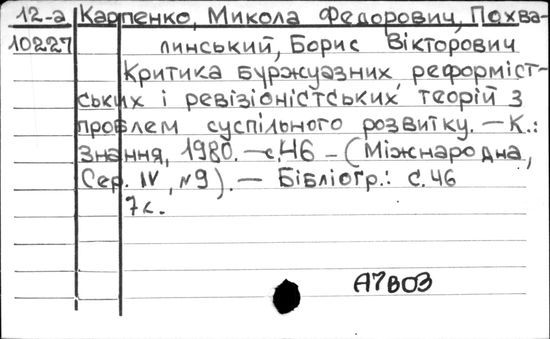 12-а Карпенко, Микола Федорович, Похва-
10227 линський, Борис Вікторович
Критика буржуазних, реформіст-
ських і ревізіоністських теорій з
проблем суспільного розвитку. – К.:
Знання, 1980. – с.46 – (Міжнародна,
Сер. IV, №9). – Бібліогр.: с.46
7к.
А7В03